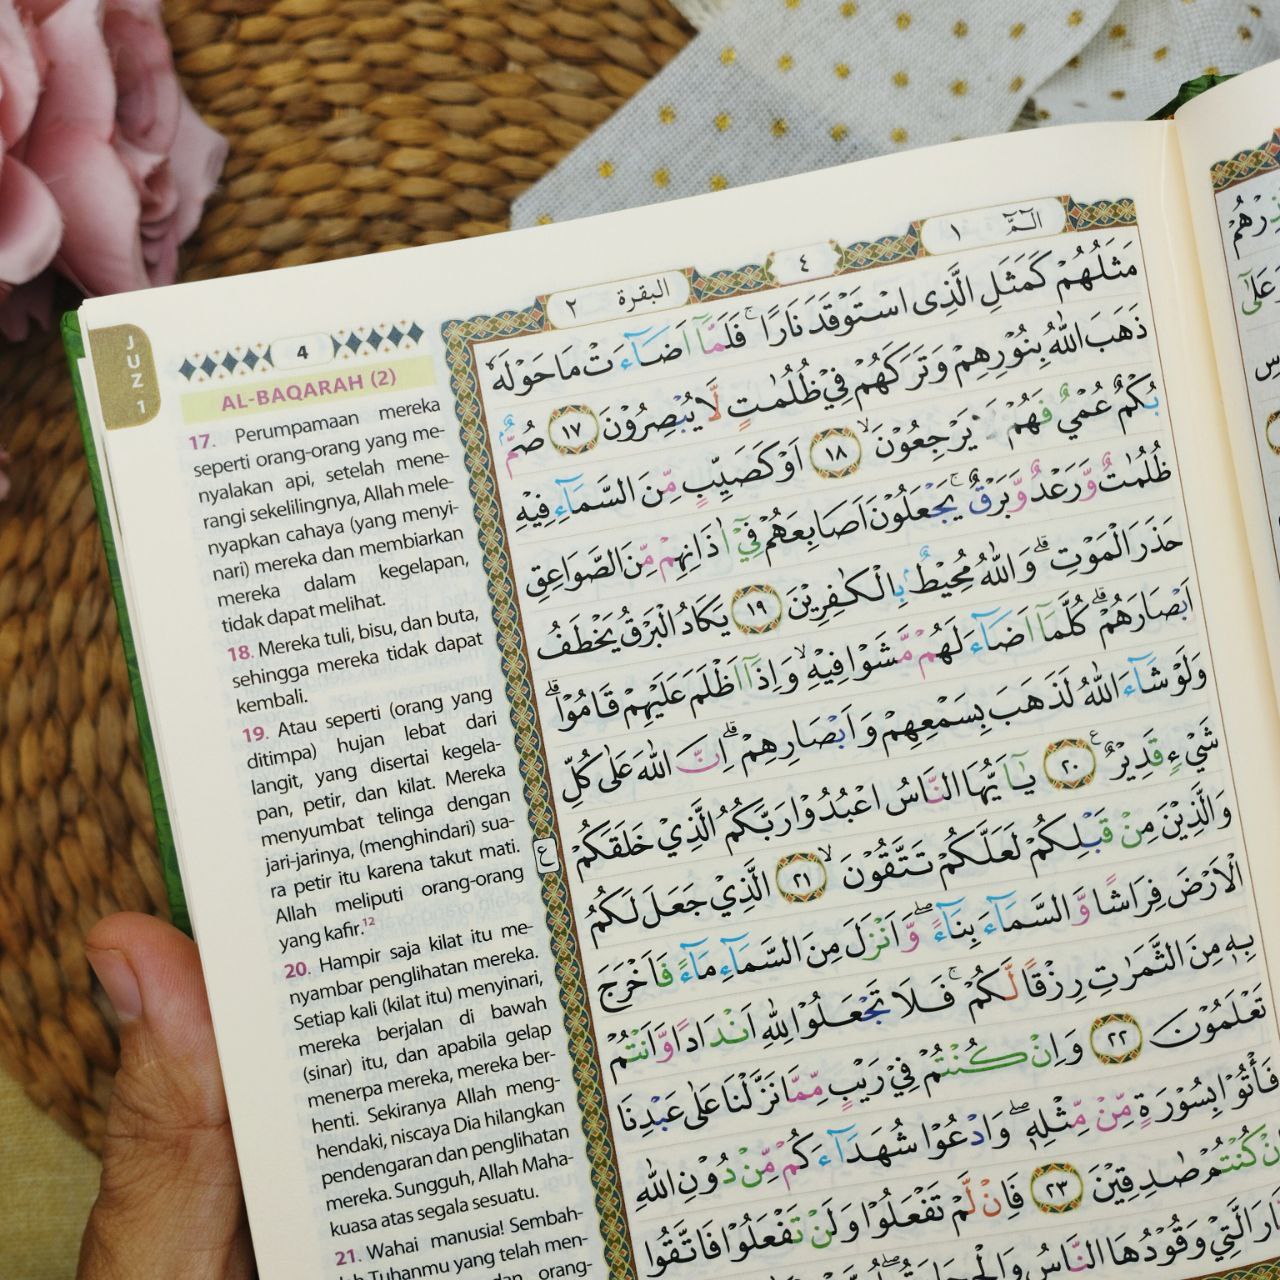 JUZ 1
4
AL-BAQARAH (2)
17. Perumpamaan mereka
seperti orang-orang yang me-
nyalakan api, setelah mene-
rangi sekelilingnya, Allah mele-
nyapkan cahaya (yang menyi-
nari) mereka dan membiarkan
mereka dalam kegelapan,
tidak dapat melihat.
18. Mereka tuli, bisu, dan buta,
sehingga mereka tidak dapat
kembali.
19. Atau seperti (orang yang
ditimpa) hujan lebat dari
langit, yang disertai kegela-
pan, petir, dan kilat. Mereka
menyumbat telinga dengan
jari-jarinya, (menghindari) sua-
ra petir itu karena takut mati.
Allah meliputi orang-orang
yang kafir.12
20. Hampir saja kilat itu me-
nyambar penglihatan mereka.
Setiap kali (kilat itu) menyinari,
mereka berjalan di bawah
(sinar) itu, dan apabila gelap
menerpa mereka, mereka ber-
henti. Sekiranya Allah meng-
hendaki, niscaya Dia hilangkan
pendengaran dan penglihatan
mereka. Sungguh, Allah Maha-
kuasa atas segala sesuatu.
21. Wahai manusia! Sembah-
lah Tuhanmu yang telah men-
dan orang-
الۤمّۤ ١
٤
البقرة ٢
مَثَلُهُمْ كَمَثَلِ الَّذِى اسْتَوْقَدَ نَارًاۚ فَلَمَّآ اَضَاۤءَتْ مَا حَوْلَهٗ
ذَهَبَ اللّٰهُ بِنُوْرِهِمْ وَتَرَكَهُمْ فِيْ ظُلُمٰتٍ لَّا يُبْصِرُوْنَ ١٧ صُمٌّۢ
بُكْمٌ عُمْيٌ فَهُمْ لَا يَرْجِعُوْنَۙ ١٨ اَوْ كَصَيِّبٍ مِّنَ السَّمَاۤءِ فِيْهِ
ظُلُمٰتٌ وَّرَعْدٌ وَّبَرْقٌۚ يَجْعَلُوْنَ اَصَابِعَهُمْ فِيْٓ اٰذَانِهِمْ مِّنَ الصَّوَاعِقِ
حَذَرَ الْمَوْتِۗ وَاللّٰهُ مُحِيْطٌۢ بِالْكٰفِرِيْنَ ١٩ يَكَادُ الْبَرْقُ يَخْطَفُ
اَبْصَارَهُمْۗ كُلَّمَآ اَضَاۤءَ لَهُمْ مَّشَوْا فِيْهِۙ وَاِذَآ اَظْلَمَ عَلَيْهِمْ قَامُوْاۗ
وَلَوْ شَاۤءَ اللّٰهُ لَذَهَبَ بِسَمْعِهِمْ وَاَبْصَارِهِمْۗ اِنَّ اللّٰهَ عَلٰى كُلِّ
شَيْءٍ قَدِيْرٌ ࣖ ٢٠ يٰٓاَيُّهَا النَّاسُ اعْبُدُوْا رَبَّكُمُ الَّذِيْ خَلَقَكُمْ
ع
وَالَّذِيْنَ مِنْ قَبْلِكُمْ لَعَلَّكُمْ تَتَّقُوْنَۙ ٢١ الَّذِيْ جَعَلَ لَكُمُ
الْاَرْضَ فِرَاشًا وَّالسَّمَاۤءَ بِنَاۤءًۖ وَّاَنْزَلَ مِنَ السَّمَاۤءِ مَاۤءً فَاَخْرَجَ
بِهٖ مِنَ الثَّمَرٰتِ رِزْقًا لَّكُمْۚ فَلَا تَجْعَلُوْا لِلّٰهِ اَنْدَادًا وَّاَنْتُمْ
تَعْلَمُوْنَ ٢٢ وَاِنْ كُنْتُمْ فِيْ رَيْبٍ مِّمَّا نَزَّلْنَا عَلٰى عَبْدِنَا
فَأْتُوْا بِسُوْرَةٍ مِّنْ مِّثْلِهٖۖ وَادْعُوْا شُهَدَاۤءَكُمْ مِّنْ دُوْنِ اللّٰهِ
كُنْتُمْ صٰدِقِيْنَ ٢٣ فَاِنْ لَّمْ تَفْعَلُوْا وَلَنْ تَفْعَلُوْا فَاتَّقُوا
الَّتِيْ وَقُوْدُهَا النَّاسُ